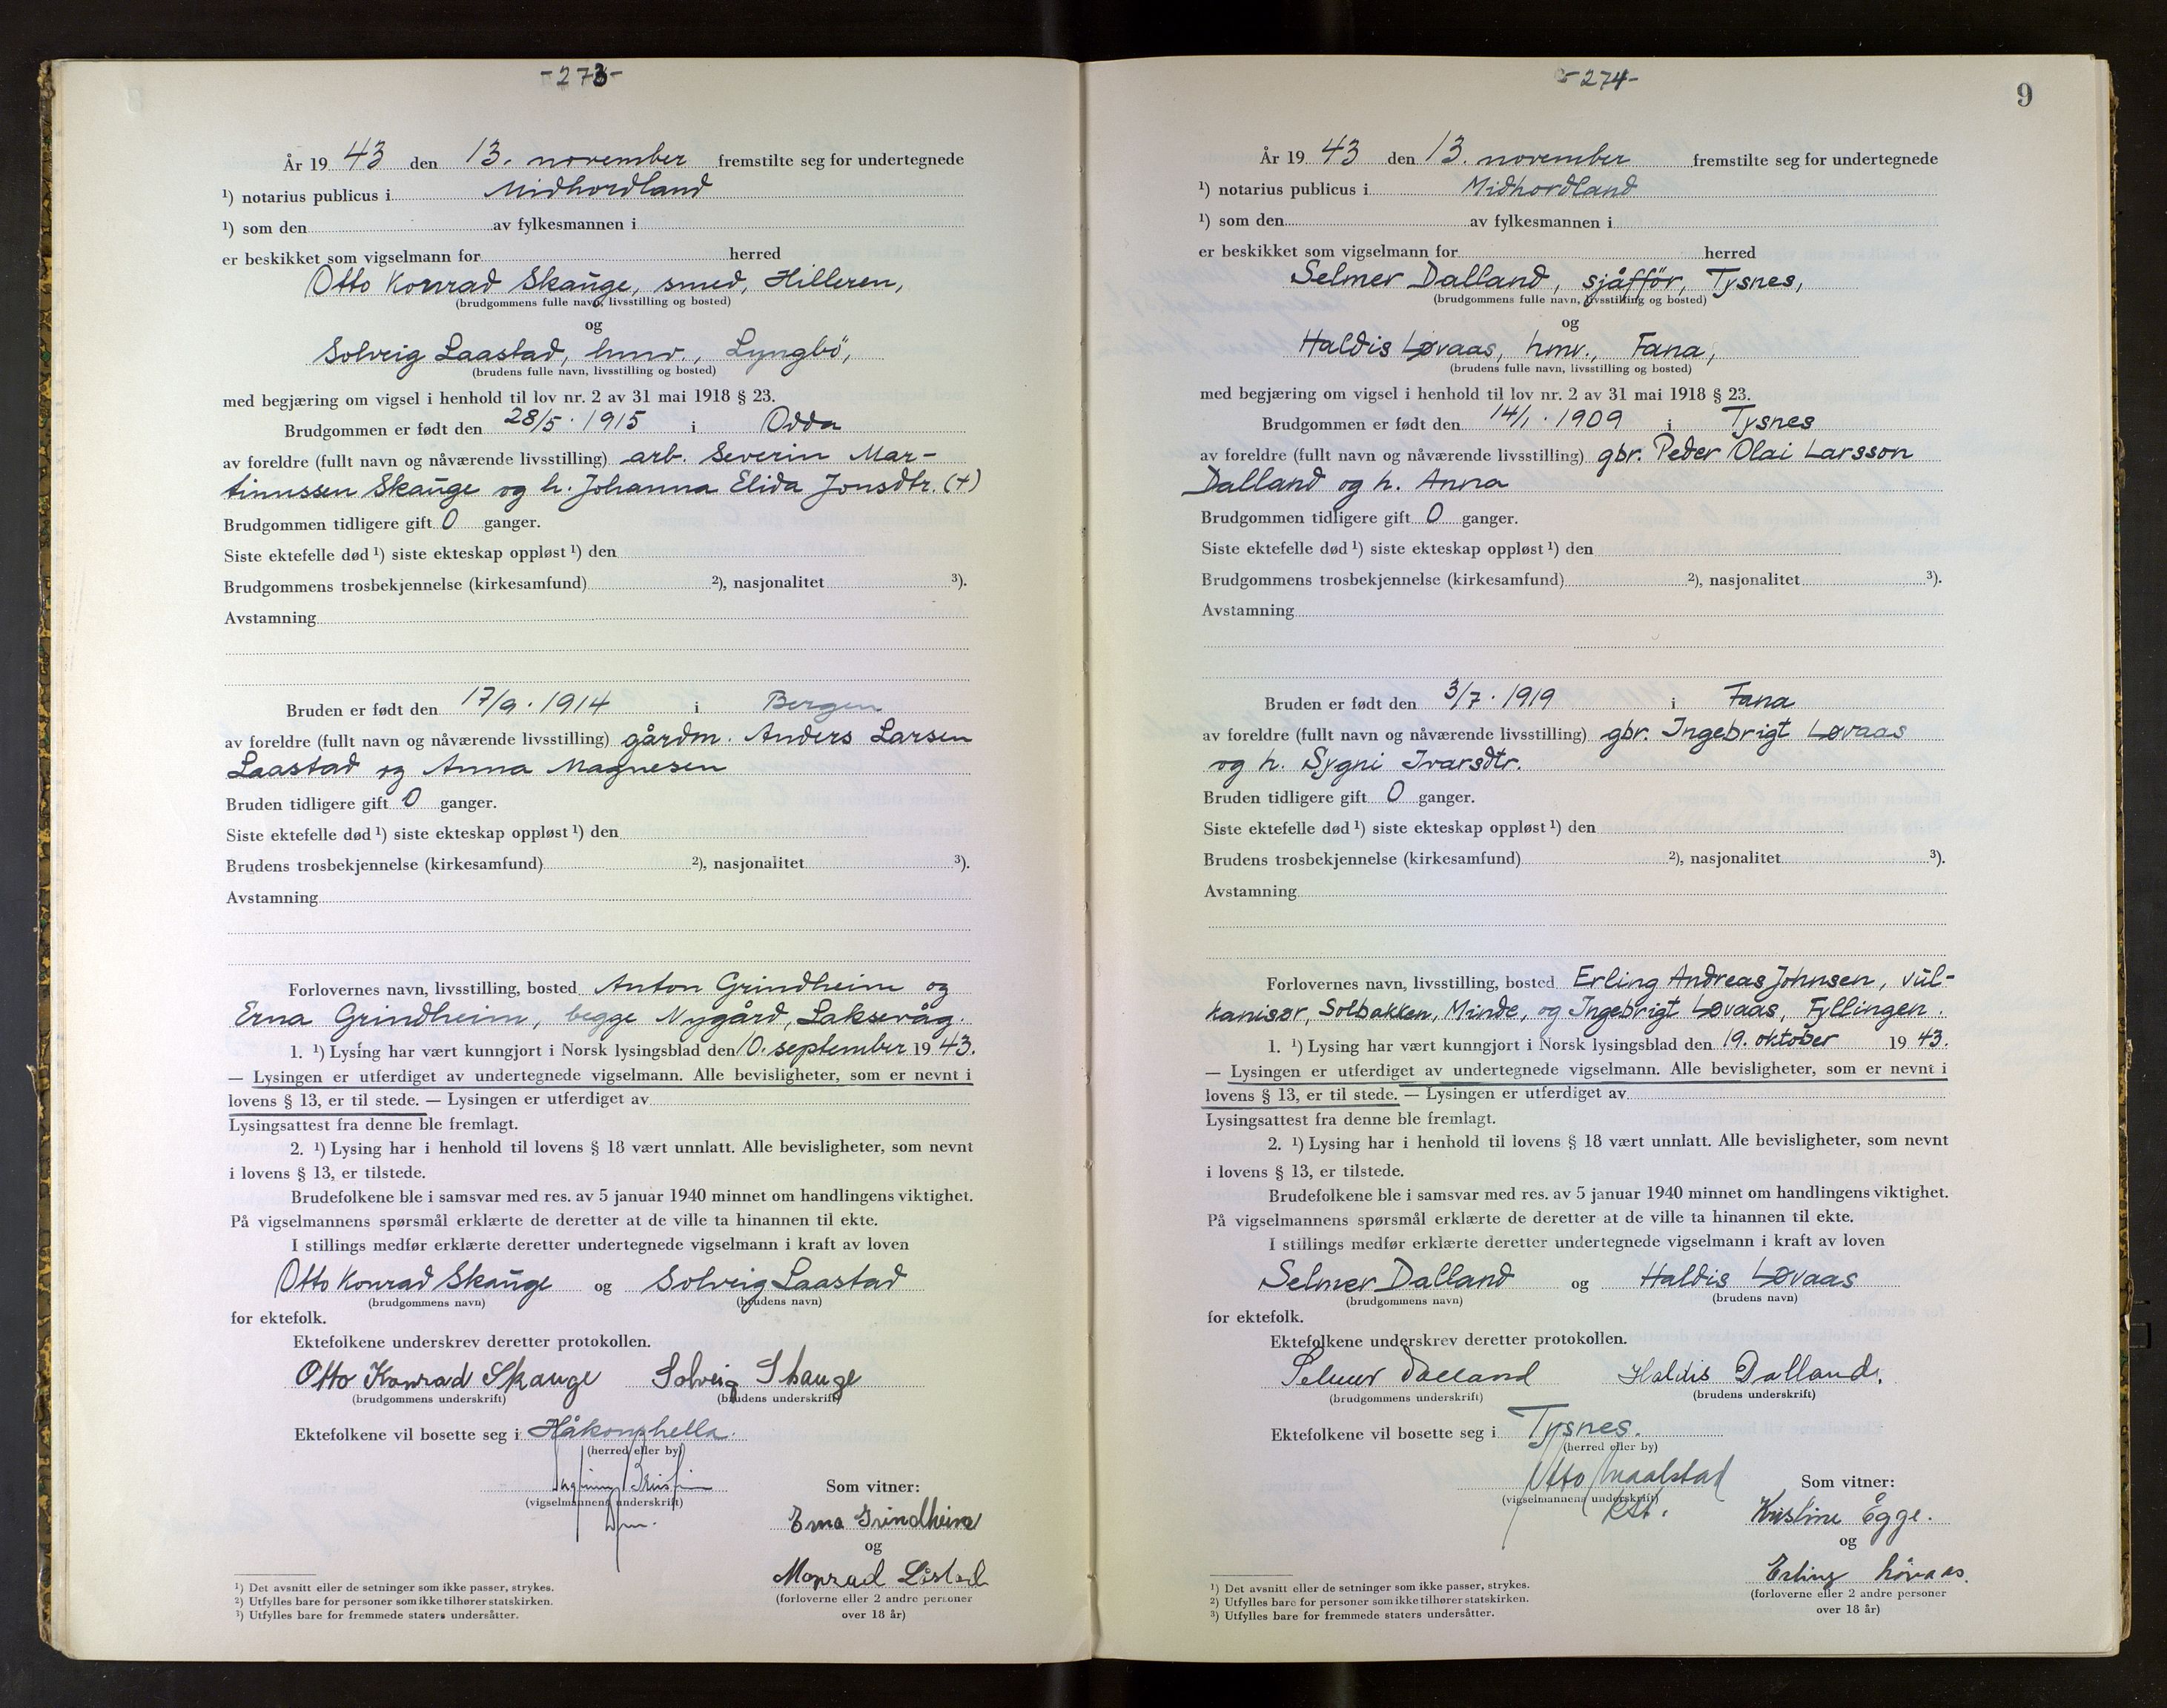 -273-
År 19 43 den 13. november fremstilte seg for undertegnede
¹) notarius publicus i Midhordland
¹) som den av fylkesmannen i
er beskikket som vigselmann for herred
Otto Konrad Skauge, smed, Hilleren,
(brudgommens fulle navn, livsstilling og bosted)
og
Solveig Laastad, hmv., Lyngbö,
(brudens fulle navn, livsstilling og bosted)
med begjæring om vigsel i henhold til lov nr. 2 av 31 mai 1918 § 23.
Brudgommen er født den 28/5 . 1915 i Odda
av foreldre (fullt navn og nåværende livsstilling) arb. Severin Mar-
tinussen Skauge og h. Johanna Elida Jonsdtr. (+)
Brudgommen tidligere gift 0 ganger.
Siste ektefelle død ¹) siste ekteskap oppløst ¹) den
Brudgommens trosbekjennelse (kirkesamfund) ²), nasjonalitet ³).
Avstamning
Bruden er født den 17/9 . 1914 i Bergen
av foreldre (fullt navn og nåværende livsstilling) gårdm. Anders Larsen
Laastad og Anna Magnesen
Bruden tidligere gift 0 ganger.
Siste ektefelle død ¹) siste ekteskap oppløst ¹) den
Brudens trosbekjennelse (kirkesamfund) ²), nasjonalitet ³).
Avstamning
Forlovernes navn, livsstilling, bosted Anton Grindheim og
Erna Grindheim, begge Nygård, Laksevåg.
1. ¹) Lysing har vært kunngjort i Norsk lysingsblad den 10. september 19 43.
— Lysingen er utferdiget av undertegnede vigselmann. Alle bevisligheter, som er nevnt i
lovens § 13, er til stede. — Lysingen er utferdiget av
Lysingsattest fra denne ble fremlagt.
2. ¹) Lysing har i henhold til lovens § 18 vært unnlatt. Alle bevisligheter, som nevnt
i lovens § 13, er tilstede.
Brudefolkene ble i samsvar med res. av 5 januar 1940 minnet om handlingens viktighet.
På vigselmannens spørsmål erklærte de deretter at de ville ta hinannen til ekte.
I stillings medfør erklærte deretter undertegnede vigselmann i kraft av loven
Otto Konrad Skauge og Solveig Laastad
(brudgommens navn) (brudens navn)
for ektefolk.
Ektefolkene underskrev deretter protokollen.
Otto Konrad Skauge Solveig Skauge
(brudgommens underskrift) (brudens underskrift)
Ektefolkene vil bosette seg i Håkonshella.
(herred eller by)
(vigselmannens underskrift)
Som vitner:
Erna Grindheim
og
Monrad Låstad
(forloverne eller 2 andre personer
over 18 år)
¹) Det avsnitt eller de setninger som ikke passer, strykes.
²) Utfylles bare for personer som ikke tilhører statskirken.
³) Utfylles bare for fremmede staters undersåtter.
-274-
9
År 19 43 den 13. november fremstilte seg for undertegnede
¹) notarius publicus i Midhordland
¹) som den av fylkesmannen i
er beskikket som vigselmann for herred
Selmer Dalland, sjåfför, Tysnes,
(brudgommens fulle navn, livsstilling og bosted)
og
Haldis Løvaas, hmv., Fana,
(brudens fulle navn, livsstilling og bosted)
med begjæring om vigsel i henhold til lov nr. 2 av 31 mai 1918 § 23.
Brudgommen er født den 14/1 . 1909 i Tysnes
av foreldre (fullt navn og nåværende livsstilling) gbr. Peder Olai Larsson
Dalland og h. Anna
Brudgommen tidligere gift 0 ganger.
Siste ektefelle død ¹) siste ekteskap oppløst ¹) den
Brudgommens trosbekjennelse (kirkesamfund) ²), nasjonalitet ³).
Avstamning
Bruden er født den 3/7 . 1919 i Fana
av foreldre (fullt navn og nåværende livsstilling) gbr. Ingebrigt Løvaas
og h. Sygni Ivarsdtr.
Bruden tidligere gift 0 ganger.
Siste ektefelle død ¹) siste ekteskap oppløst ¹) den
Brudens trosbekjennelse (kirkesamfund) ²), nasjonalitet ³).
Avstamning
Forlovernes navn, livsstilling, bosted Erling Andreas Johnsen, vul-
kanisør, Solbakken, Minde, og Ingebrigt Løvaas, Fyllingen.
1. ¹) Lysing har vært kunngjort i Norsk lysingsblad den 19. oktober 19 43.
— Lysingen er utferdiget av undertegnede vigselmann. Alle bevisligheter, som er nevnt i
lovens § 13, er til stede. — Lysingen er utferdiget av
Lysingsattest fra denne ble fremlagt.
2. ¹) Lysing har i henhold til lovens § 18 vært unnlatt. Alle bevisligheter, som nevnt
i lovens § 13, er tilstede.
Brudefolkene ble i samsvar med res. av 5 januar 1940 minnet om handlingens viktighet.
På vigselmannens spørsmål erklærte de deretter at de ville ta hinannen til ekte.
I stillings medfør erklærte deretter undertegnede vigselmann i kraft av loven
Selmer Dalland og Haldis Løvaas
(brudgommens navn) (brudens navn)
for ektefolk.
Ektefolkene underskrev deretter protokollen.
Selmer Dalland Haldis Dalland.
(brudgommens underskrift) (brudens underskrift)
Ektefolkene vil bosette seg i Tysnes.
(herred eller by)
Otto Maalstad
(vigselmannens underskrift)
kst.
Som vitner:
Kristine Egge.
og
Erling Lövaas.
(forloverne eller 2 andre personer
over 18 år)
¹) Det avsnitt eller de setninger som ikke passer, strykes.
²) Utfylles bare for personer som ikke tilhører statskirken.
³) Utfylles bare for fremmede staters undersåtter.